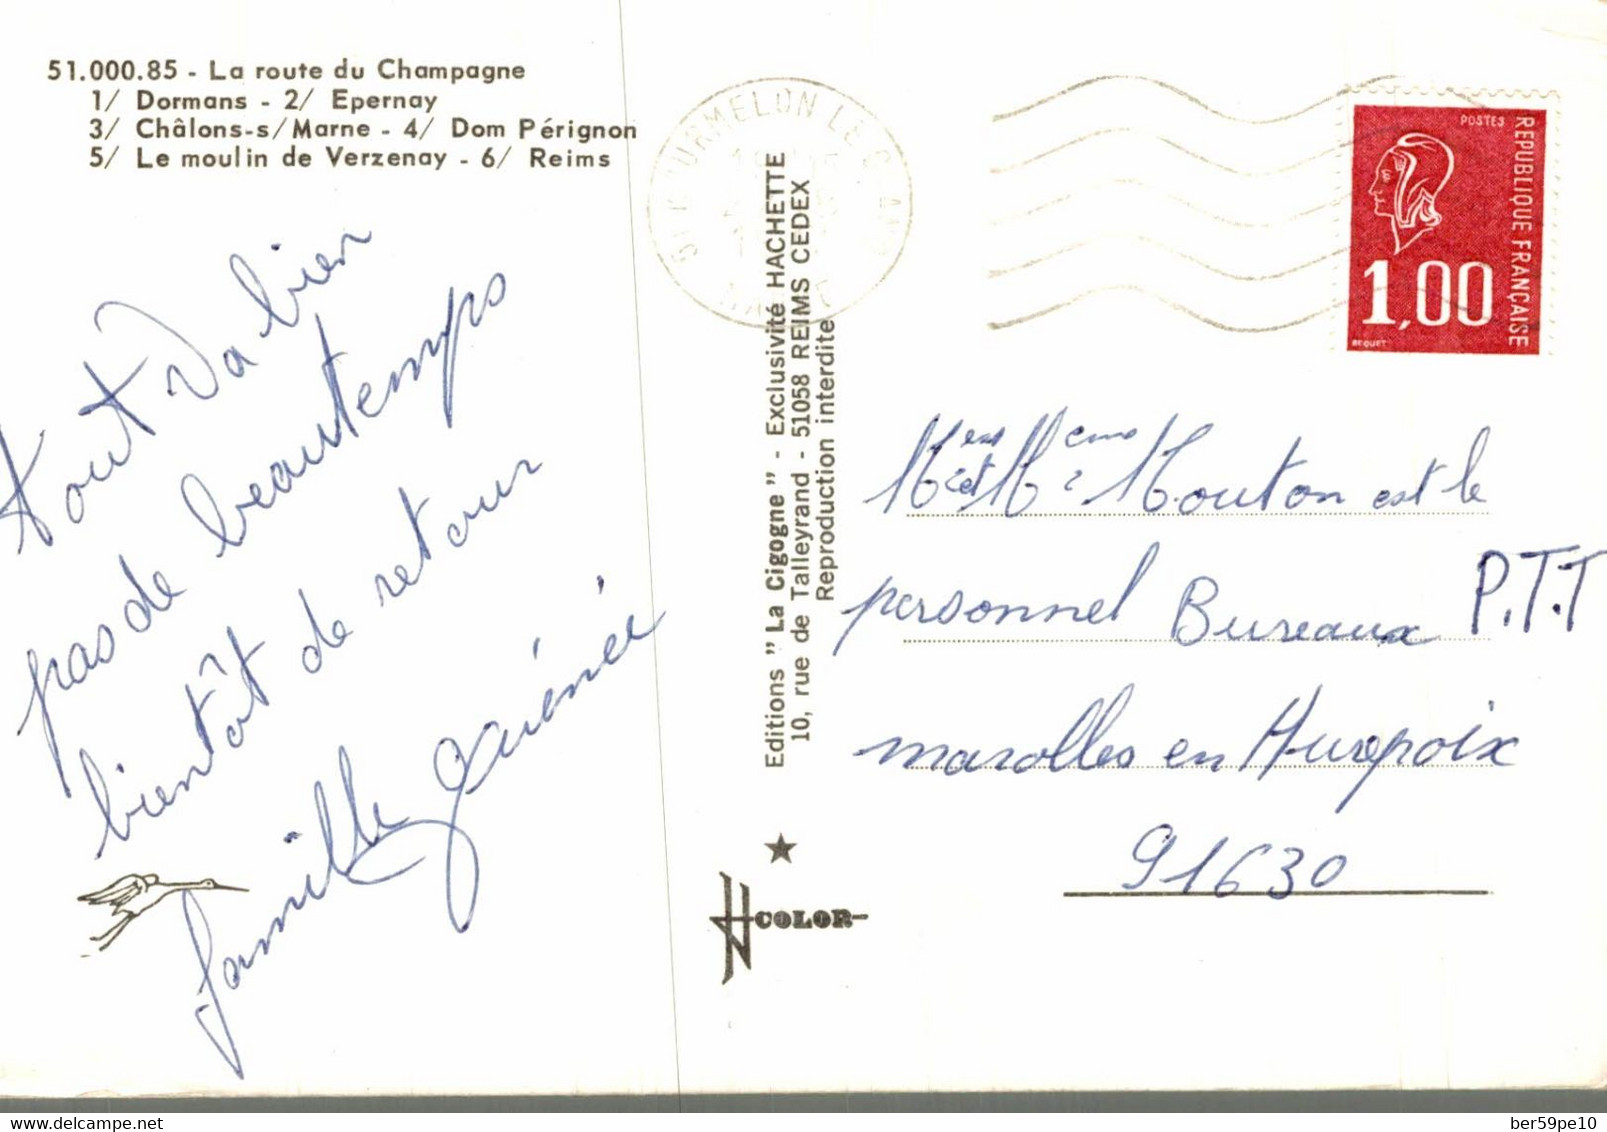 51.000.85 - La route du Champagne
1/ Dormans - 2/ Epernay
3/ Châlons-s/Marne - 4/ Dom Pérignon
5/ Le moulin de Verzenay - 6/ Reims
tout va bien
pas de beau temps
bientôt de retour
famille
Editions "La Cigogne" - Exclusivité HACHETTE
10, rue de Talleyrand - 51058 REIMS CEDEX
Reproduction interdite
COLOR
51 MOURMELON LE GRAND
MARNE
POSTES
REPUBLIQUE FRANÇAISE
1,00
BEQUET
Mouton est le
personnel Bureaux P.T.T
marolles en Hurepoix
91630
ber59pe10